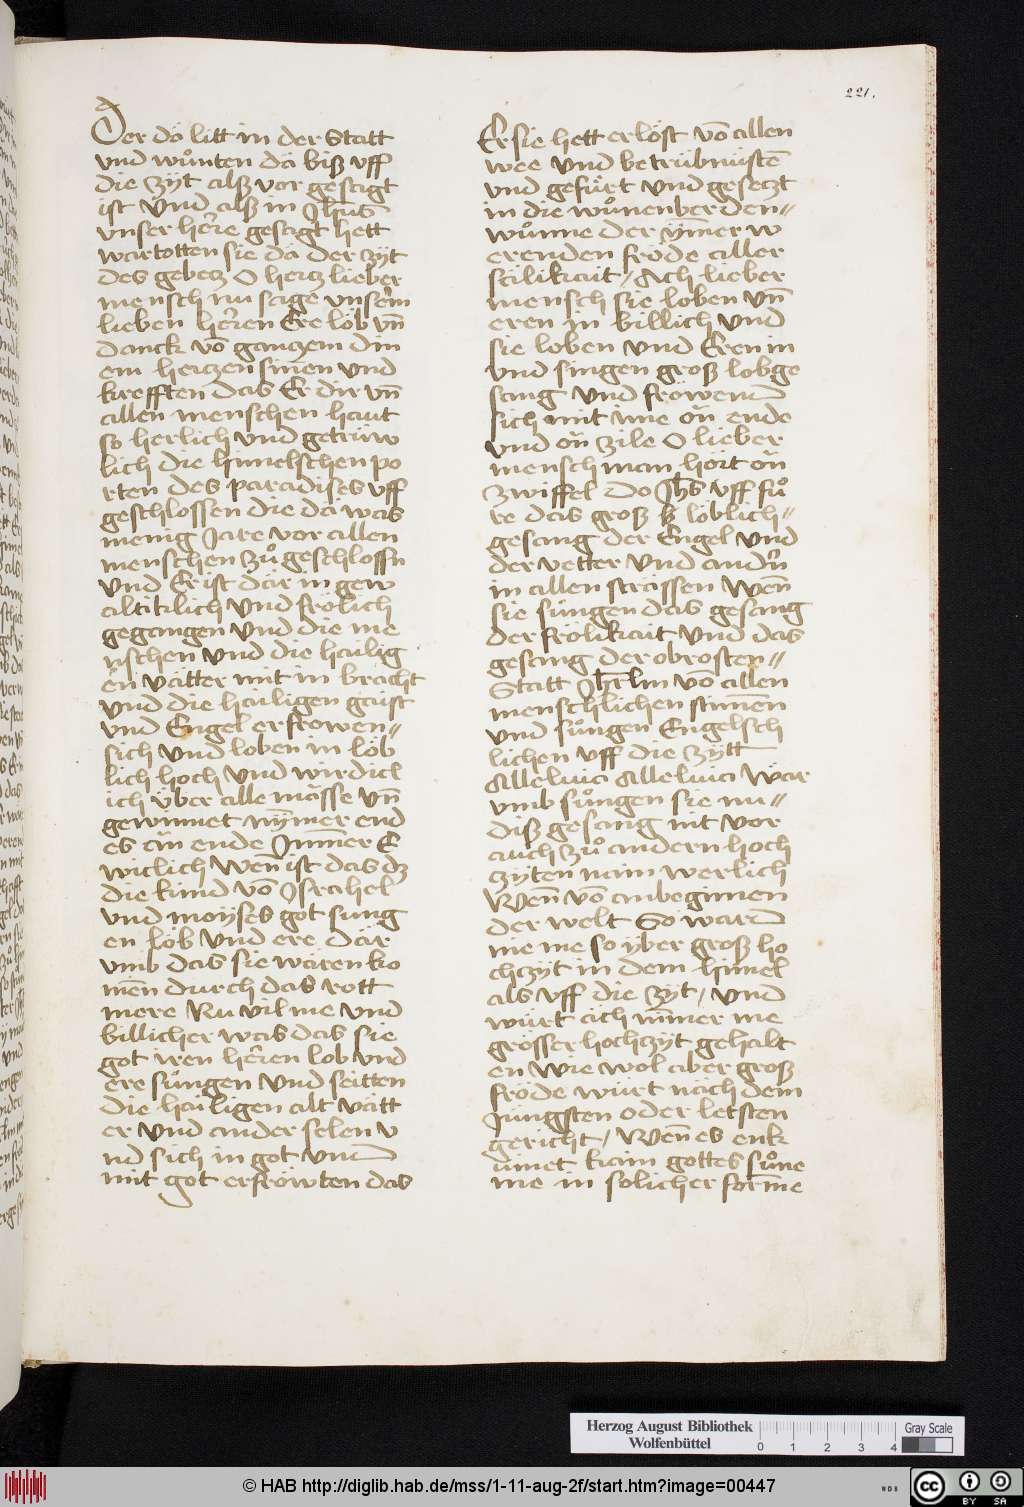 221.
Der dä litt in der Statt
vnd wůnten dä biß vff
die zÿt alß vor gesagt
ist Vnd alß in Jhūs
vnser herre gesagt hett
wartotten sie dä der zÿt
des gebetz O hertz lieber
mensch nu sage vnserm
lieben herren Ere löb vn̄
danck vō gantzem din
em hertzen sinen vnd
krefften das Er dir vn̄
allen menschen haut
so herlich vnd getrüw
lich die himelschen po
rten des paradises vff
geschlossen die dä was
menig Jare vor allen
menschen zů geschlossn
vnd Er ist där in gew
altiklich vnd frölich
gegangen vnd die me
nschen vnd die hailig
en vätter mit in bracht
vnd die hailigen gaist
vnd Engel erfrowen〃
sich vnd loben in löb
lich hoch vnd wirdicl
ich über alle mässe vn̄
gewinnet nÿmer end
es än ende Jm̄er E
wiclich Wen̄ ist das dz
die kind vō Jsrahel
vnd moÿses got sung
en löb vnd ere där
vmb das sie wären ko
men durch das rott
mere Nu vil me vnd
billicher was das sie
got iren herren lob vnd
ere sungen vnd seitten
die hailigen alt vätt
er vnd ander selen v
nd sich in got vnd
mit got erfröwten das
Er sie hett erlöst vō allen
wee vnd betrübnüstē
vnd gefürt vnd gesetzt
in die wůnenberden〃
wůnne der ÿmer w
erenden fröde aller
sälikait / Ach lieber
mensch sie loben vn̄
eren in billich vnd
sie loben vnd Eren in
vnd singen groß lobge
sang vnd fröwend
sich mit ime on̄ ende
vnd on̄ zile O lieber
mensch man hört on̄
zwiffel do Jhs vff fů
re das groß löblich〃
gesang der Engel vnd
der vetter vnd andn̄
in allen strässen Wen̄
sie sungen das gesang
der frölikait vnd das
gesang der obrosten〃
Statt Jhrlm vo allen
menschlichen stim̄en
vnd sungen Engelsch
lichen vff die zÿtt
Alleluia Alleluia Wär
vmb sungen sie nu〃
diß gesang nit vor
auch zů andern hoch
zÿten nain werlich
Wen̄ vō anbeginnen
der welt So ward
nie me so ÿber groß ho
chzÿt in dem himel
als vff die zÿt / vnd
würt äch nim̄er me
grösser hochzÿt gehalt
en wie wol aber groß
fröde würt näch dem
Jüngsten oder letsten
gericht / Wen̄ es enk
umet kain gottes sůne
me in solicher forme
Herzog August Bibliothek
Wolfenbüttel
0 1 2 3 4
Gray Scale
© HAB http://diglib.hab.de/mss/1-11-aug-2f/start.htm?image=00447
WDB
cc BY SA